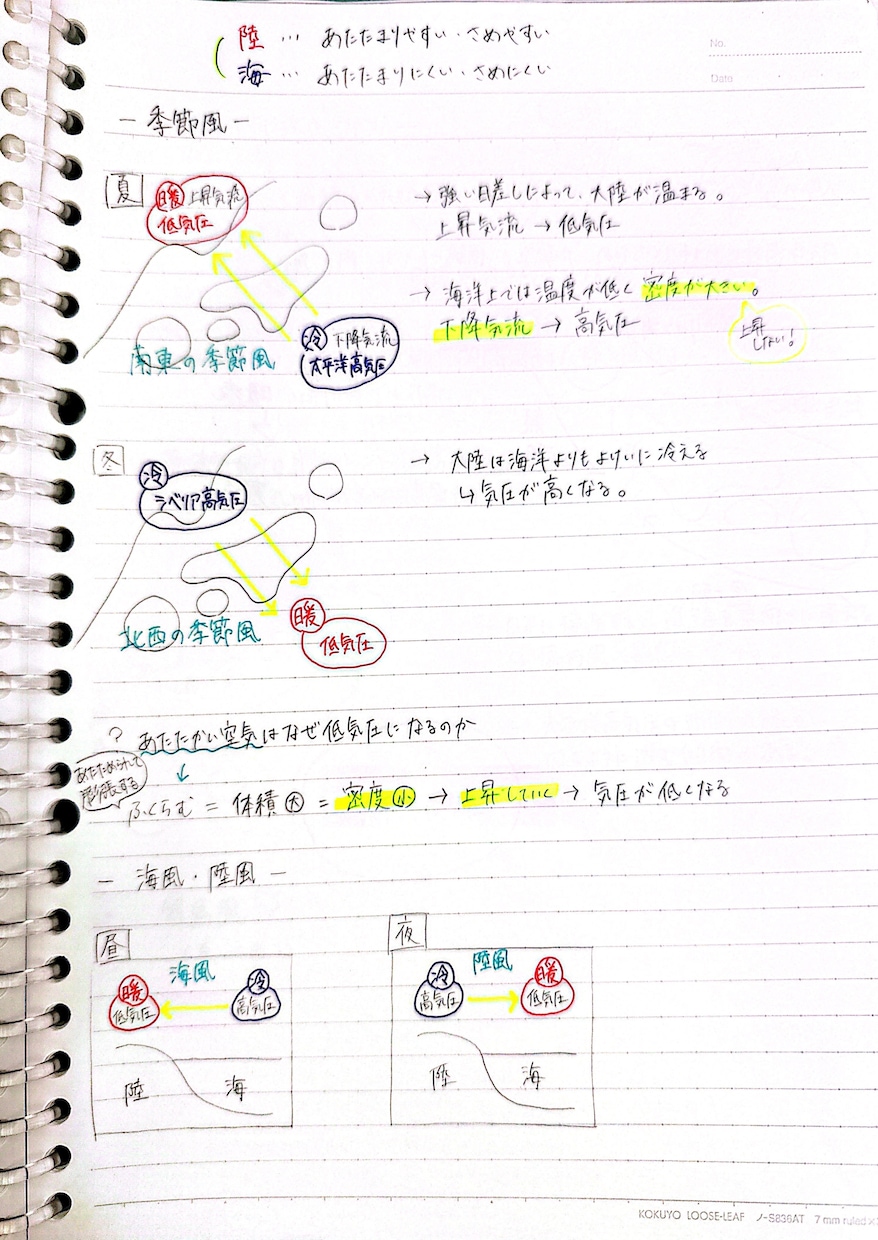 陸 … あたたまりやすい・さめやすい
海 … あたたまりにくい・さめにくい
No.
Date
― 季節風 ―
夏
暖 上昇気流
低気圧
→ 強い日差しによって、大陸が温まる。
上昇気流 → 低気圧
→ 海洋上では温度が低く密度が大きい。
下降気流 → 高気圧
上昇
しない!
冷 下降気流
太平洋高気圧
南東の季節風
冬
冷
シベリア高気圧
→ 大陸は海洋よりもよけいに冷える
↳ 気圧が高くなる。
北西の季節風
暖
低気圧
? あたたかい空気はなぜ低気圧になるのか
↓
あたためられて
膨張する
ふくらむ = 体積大 = 密度小 → 上昇していく → 気圧が低くなる
― 海風・陸風 ―
昼
海風
暖
低気圧
冷
高気圧
陸
海
夜
陸風
冷
高気圧
暖
低気圧
陸
海
KOKUYO LOOSE-LEAF ノ-S836AT 7 mm ruled